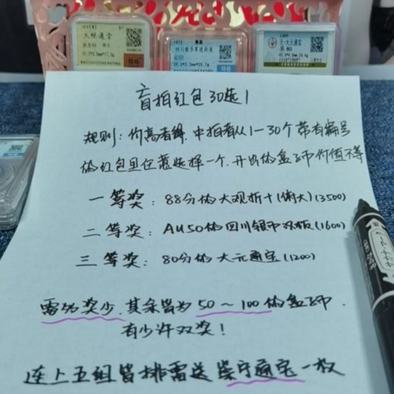 盲拍红包30选1
规则：价高者得，中拍者从1—30个带有编号
的红包里任意选择一个，开出的盒子币价值不等
一等奖：88分的大观折十(3500)
二等奖：AU50的四川银币双板(1600)
三等奖：80分的大元通宝(1200)
雷多奖少，其余皆为50～100的盒子币，
有少许双奖！
连上五组皆排雷送崇宁通宝一枚